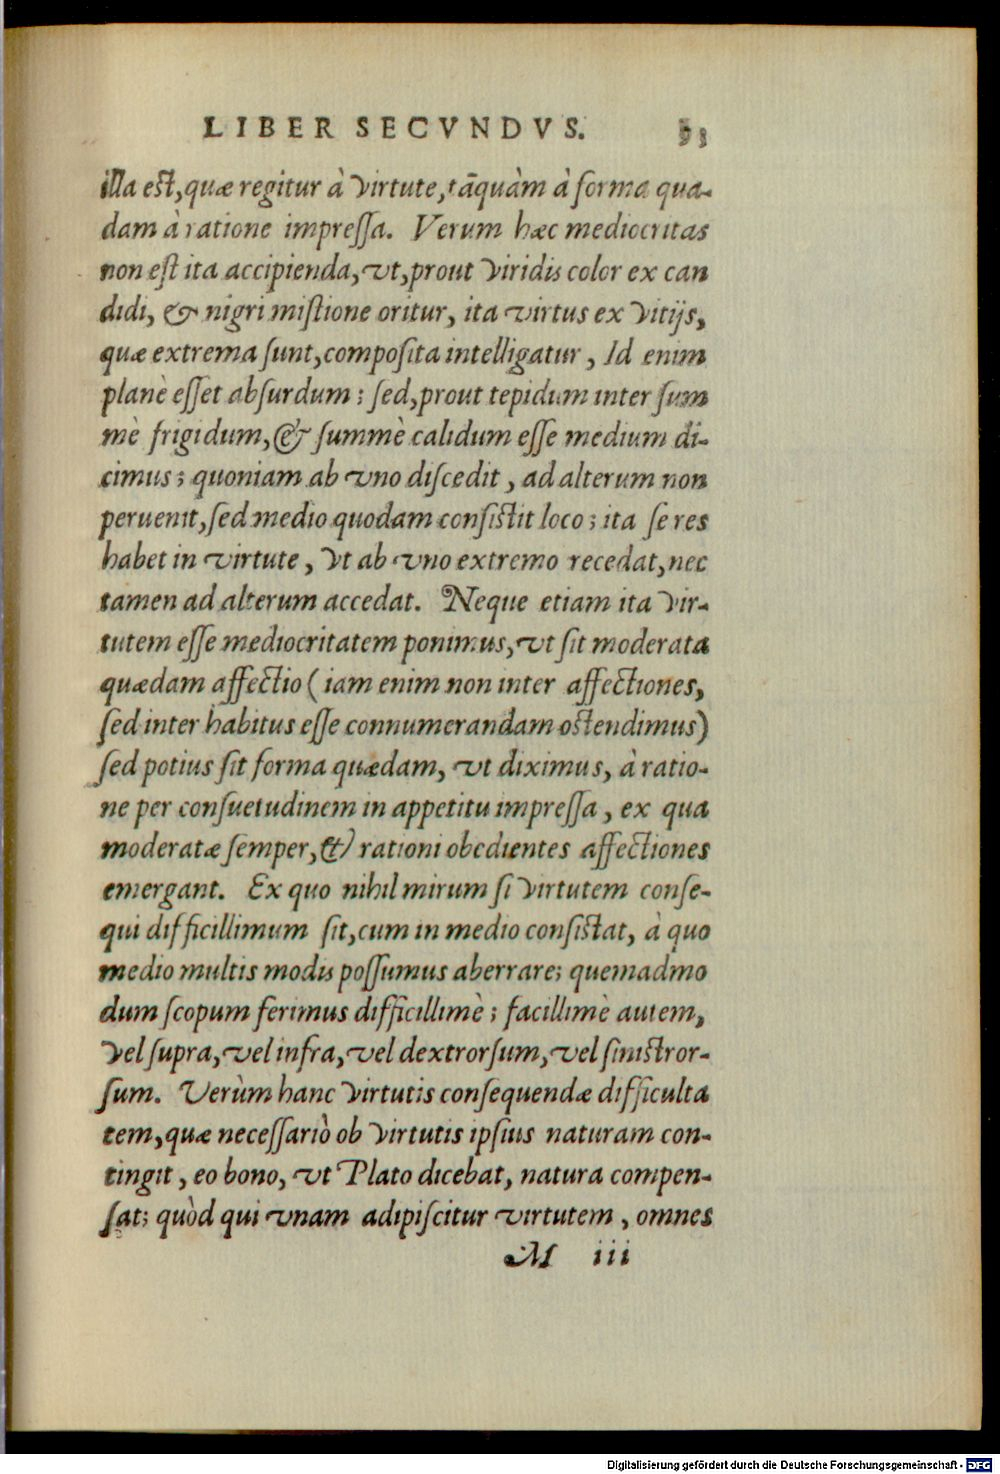 LIBER SECVNDVS. 93
illa est, quæ regitur à virtute, tãquàm à forma qua-
dam à ratione impressa. Verum hæc mediocritas
non est ita accipienda, vt, prout viridis color ex can
didi, & nigri mistione oritur, ita virtus ex vitijs,
quæ extrema sunt, composita intelligatur, Id enim
planè esset absurdum; sed, prout tepidum inter sum
mè frigidum, & summè calidum esse medium di-
cimus; quoniam ab vno discedit, ad alterum non
peruenit, sed medio quodam consistit loco; ita se res
habet in virtute, vt ab vno extremo recedat, nec
tamen ad alterum accedat. Neque etiam ita vir-
tutem esse mediocritatem ponimus, vt sit moderata
quædam affectio (iam enim non inter affectiones,
sed inter habitus esse connumerandam ostendimus)
sed potius sit forma quædam, vt diximus, à ratio-
ne per consuetudinem in appetitu impressa, ex qua
moderatæ semper, & rationi obedientes affectiones
emergant. Ex quo nihil mirum si virtutem conse-
qui difficillimum sit, cum in medio consistat, à quo
medio multis modis possumus aberrare; quemadmo
dum scopum ferimus difficillimè; facillimè autem,
vel supra, vel infra, vel dextrorsum, vel sinistror-
sum. Verùm hanc virtutis consequendæ difficulta
tem, quæ necessariò ob virtutis ipsius naturam con-
tingit, eo bono, vt Plato dicebat, natura compen-
sat; quòd qui vnam adipiscitur virtutem, omnes
M iii
Digitalisierung gefördert durch die Deutsche Forschungsgemeinschaft - DFG